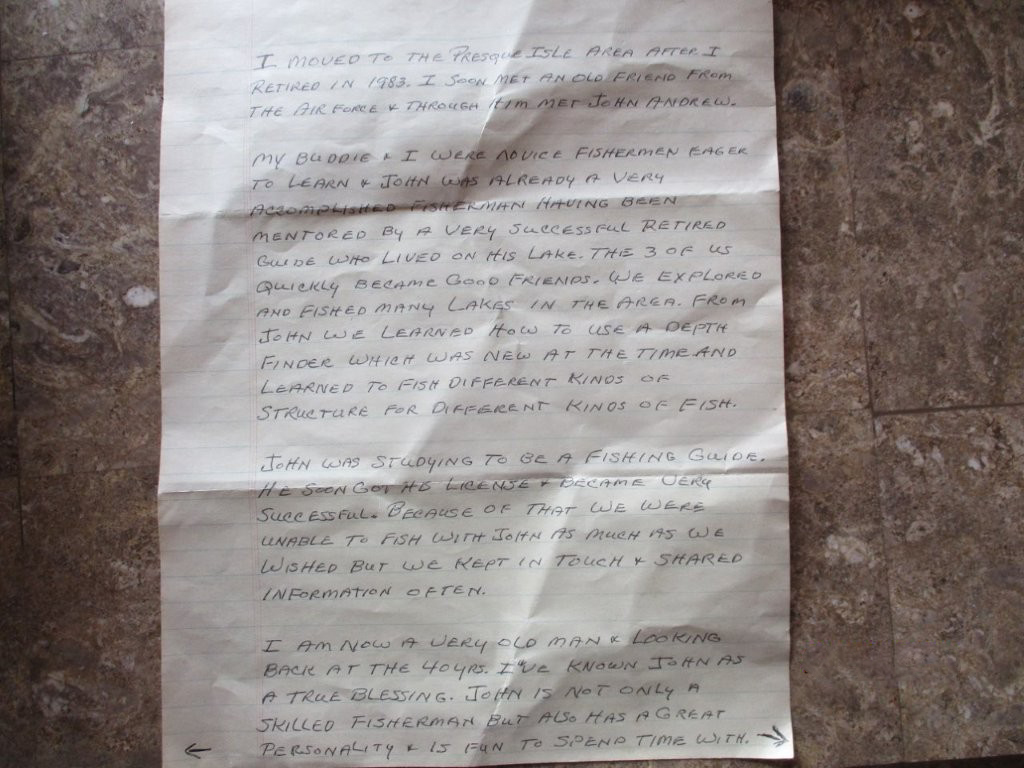 I MOVED TO THE PRESQUE ISLE AREA AFTER I
RETIRED IN 1983. I SOON MET AN OLD FRIEND FROM
THE AIR FORCE & THROUGH HIM MET JOHN ANDREW.
MY BUDDIE & I WERE NOVICE FISHERMEN EAGER
TO LEARN & JOHN WAS ALREADY A VERY
ACCOMPLISHED FISHERMAN HAVING BEEN
MENTORED BY A VERY SUCCESSFUL RETIRED
GUIDE WHO LIVED ON HIS LAKE. THE 3 OF US
QUICKLY BECAME GOOD FRIENDS. WE EXPLORED
AND FISHED MANY LAKES IN THE AREA. FROM
JOHN WE LEARNED HOW TO USE A DEPTH
FINDER WHICH WAS NEW AT THE TIME AND
LEARNED TO FISH DIFFERENT KINDS OF
STRUCTURE FOR DIFFERENT KINDS OF FISH.
JOHN WAS STUDYING TO BE A FISHING GUIDE.
HE SOON GOT HIS LICENSE & BECAME VERY
SUCCESSFUL. BECAUSE OF THAT WE WERE
UNABLE TO FISH WITH JOHN AS MUCH AS WE
WISHED BUT WE KEPT IN TOUCH & SHARED
INFORMATION OFTEN.
I AM NOW A VERY OLD MAN & LOOKING
BACK AT THE 40 YRS. I'VE KNOWN JOHN AS
A TRUE BLESSING. JOHN IS NOT ONLY A
SKILLED FISHERMAN BUT ALSO HAS A GREAT
PERSONALITY & IS FUN TO SPEND TIME WITH.